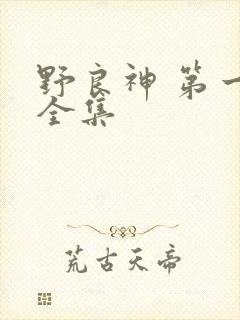 野良神 第一
全集
荒古天帝